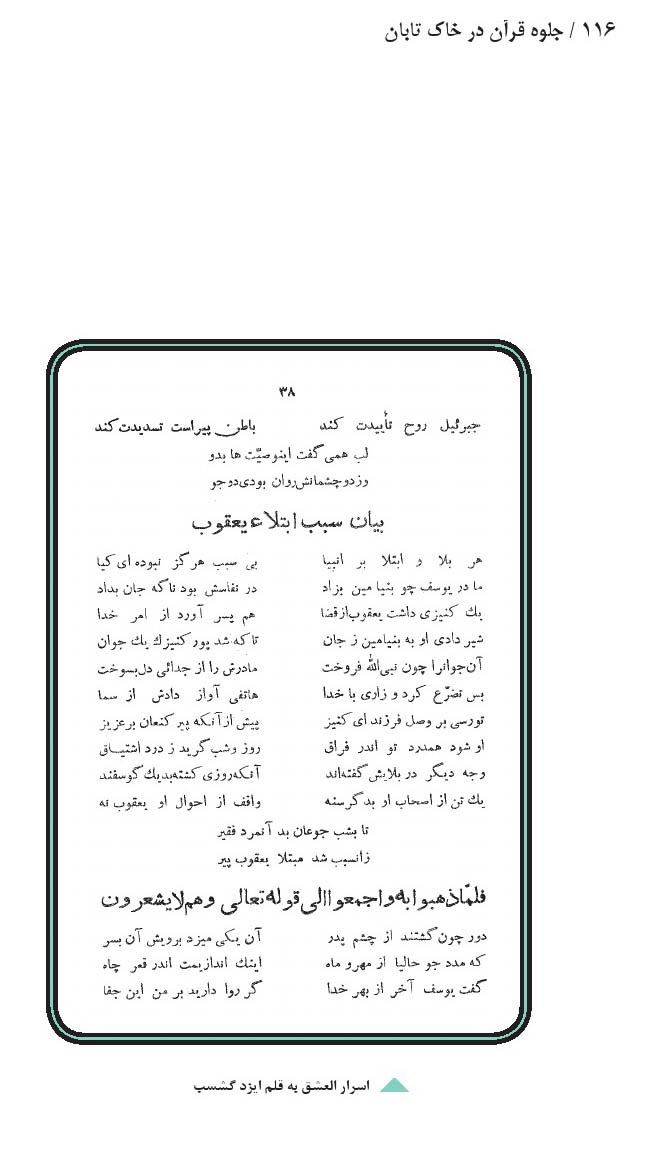 ۱۱۶ / جلوه قرآن در خاک تابان
۳۸
جبرئیل روح تأییدت کند باطن پیراست تسدیدت کند
لب همی گفت اینوصیّت ها بدو
وزدو چشمانش روان بودی دو جو
بیان سبب ابتلاء یعقوب
هر بلا و ابتلا بر انبیا بی سبب هرگز نبوده ای کیا
مادر یوسف چو بنیامین بزاد در نفاسش بود ناگه جان بداد
یك کنیزی داشت یعقوب از قضا هم پسر آورد از امر خدا
شیر دادی او به بنیامین ز جان تا که شد پور کنیزك یك جوان
آن جوانرا چون نبی الله فروخت مادرش را از جدائی دل بسوخت
بس تضرّع کرد و زاری با خدا هاتفی آواز دادش از سما
تو رسی بر وصل فرزند ای کنیز پیش از آنکه پیر کنعان بر عزیز
او شود همدرد تو اندر فراق روز و شب گرید ز درد اشتیاق
وجه دیگر در بلایش گفته‌اند آنکه روزی کشته بد یك گوسفند
یك تن از اصحاب او بد گرسنه واقف از احوال او یعقوب نه
تا بشب جوعان بد آنمرد فقیر
زانسبب شد مبتلا یعقوب پیر
فلمّا ذهبوا به و اجمعوا الی قوله تعالی و هم لایشعرون
دور چون گشتند از چشم پدر آن یکی میزد برویش آن بسر
که مدد جو حالیا از مهر و ماه اینك اندازیمت اندر قعر چاه
گفت یوسف آخر از بهر خدا گر روا دارید بر من این جفا
اسرار العشق به قلم ایزد گشسب